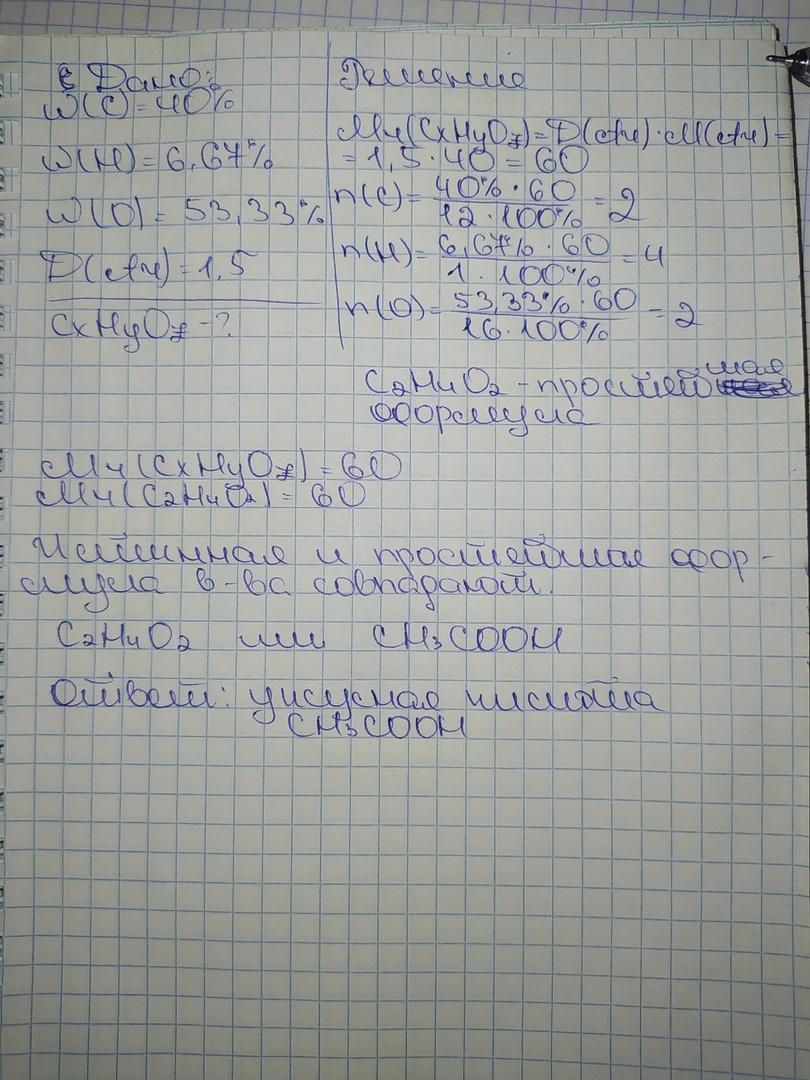 Дано:
W(C) = 40%
W(H) = 6,67%
W(O) = 53,33%
D(Ar) = 1,5
CxHyOz - ?
Решение
Mr(CxHyOz) = D(Ar) · M(Ar) =
= 1,5 · 40 = 60
n(C) = 40% · 60 / 12 · 100% = 2
n(H) = 6,67% · 60 / 1 · 100% = 4
n(O) = 53,33% · 60 / 16 · 100% = 2
C2H4O2 - простейшая
формула
Mr(CxHyOz) = 60
Mr(C2H4O2) = 60
Истинная и простейшая фор-
мула в-ва совпадают.
C2H4O2 или CH3COOH
Ответ: уксусная кислота
CH3COOH